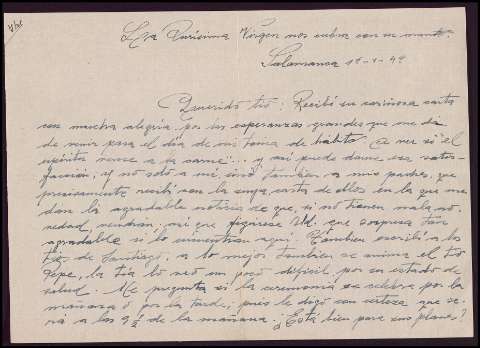 La Purísima Virgen nos cubra con su manto.
Salamanca 19-1-49
Querido tío: Recibí su cariñosa carta
con mucha alegría por las esperanzas grandes que me da
de venir para el día de mi toma de hábito. A ver si "el
espíritu vence a la carne"... y así puede darme esa satis-
facción, y no solo a mí, sinó tambien a mis padres, que
precisamente recibí con la suya carta de ellos en la que me
dan la agradable noticia de que, si no tienen mala no-
vedad, vendrán; así que figúrese Ud. que sorpresa tan
agradable si lo encuentran aquí. Tambien escribí a los
tíos de Santiago; a lo mejor tambien se anima el tío
Pepe, la tía lo veo un poco difícil por su estado de
salud. Me pregunta si la ceremonia se celebra por la
mañana o por la tarde; pues le digo con certeza que se-
rá a las 9 ½ de la mañana. ¿Está bien para sus planes?